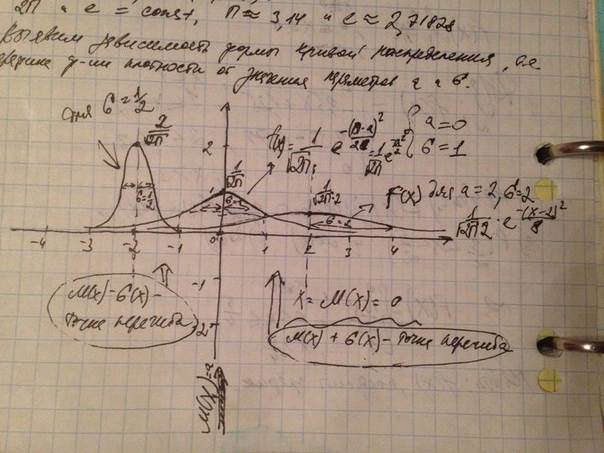 2π и e = const, π ≈ 3,14 и e ≈ 2,71828
Выявим зависимость формы кривой распределения, т.е.
функции плотности от значения параметров a и σ.
для σ = 1/2
2/√2π
f(x) = 1/√2π · e^
= 1/√2π e^
{ a = 0
σ = 1
2
1/√2π
1
1/√2π·2
f(x) для a = 2, σ = 2
1/√2π2 · e^-(x-2)²/8
σ=1/2
σ=1
σ=2
-4 -3 -2 -1 0 1 2 3 4
-1
M(X) - σ(X) -
точка перегиба
2
x = M(X) = a
M(X) + σ(X) - точка перегиба
M(X) = a